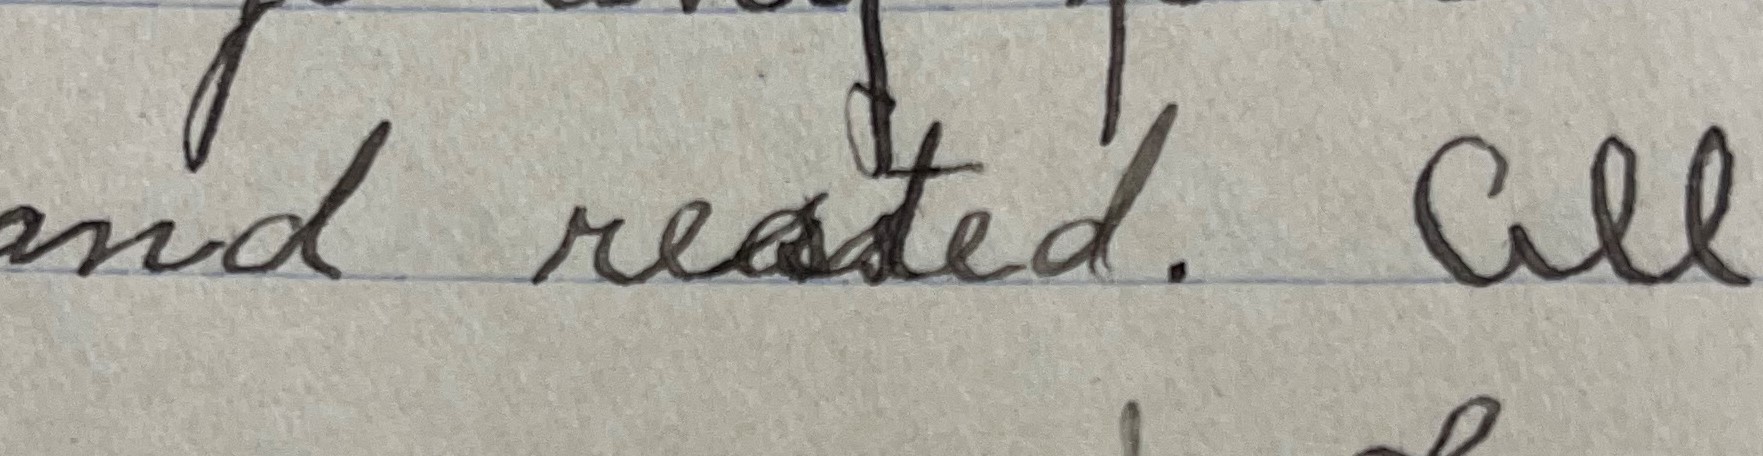 and rested. All